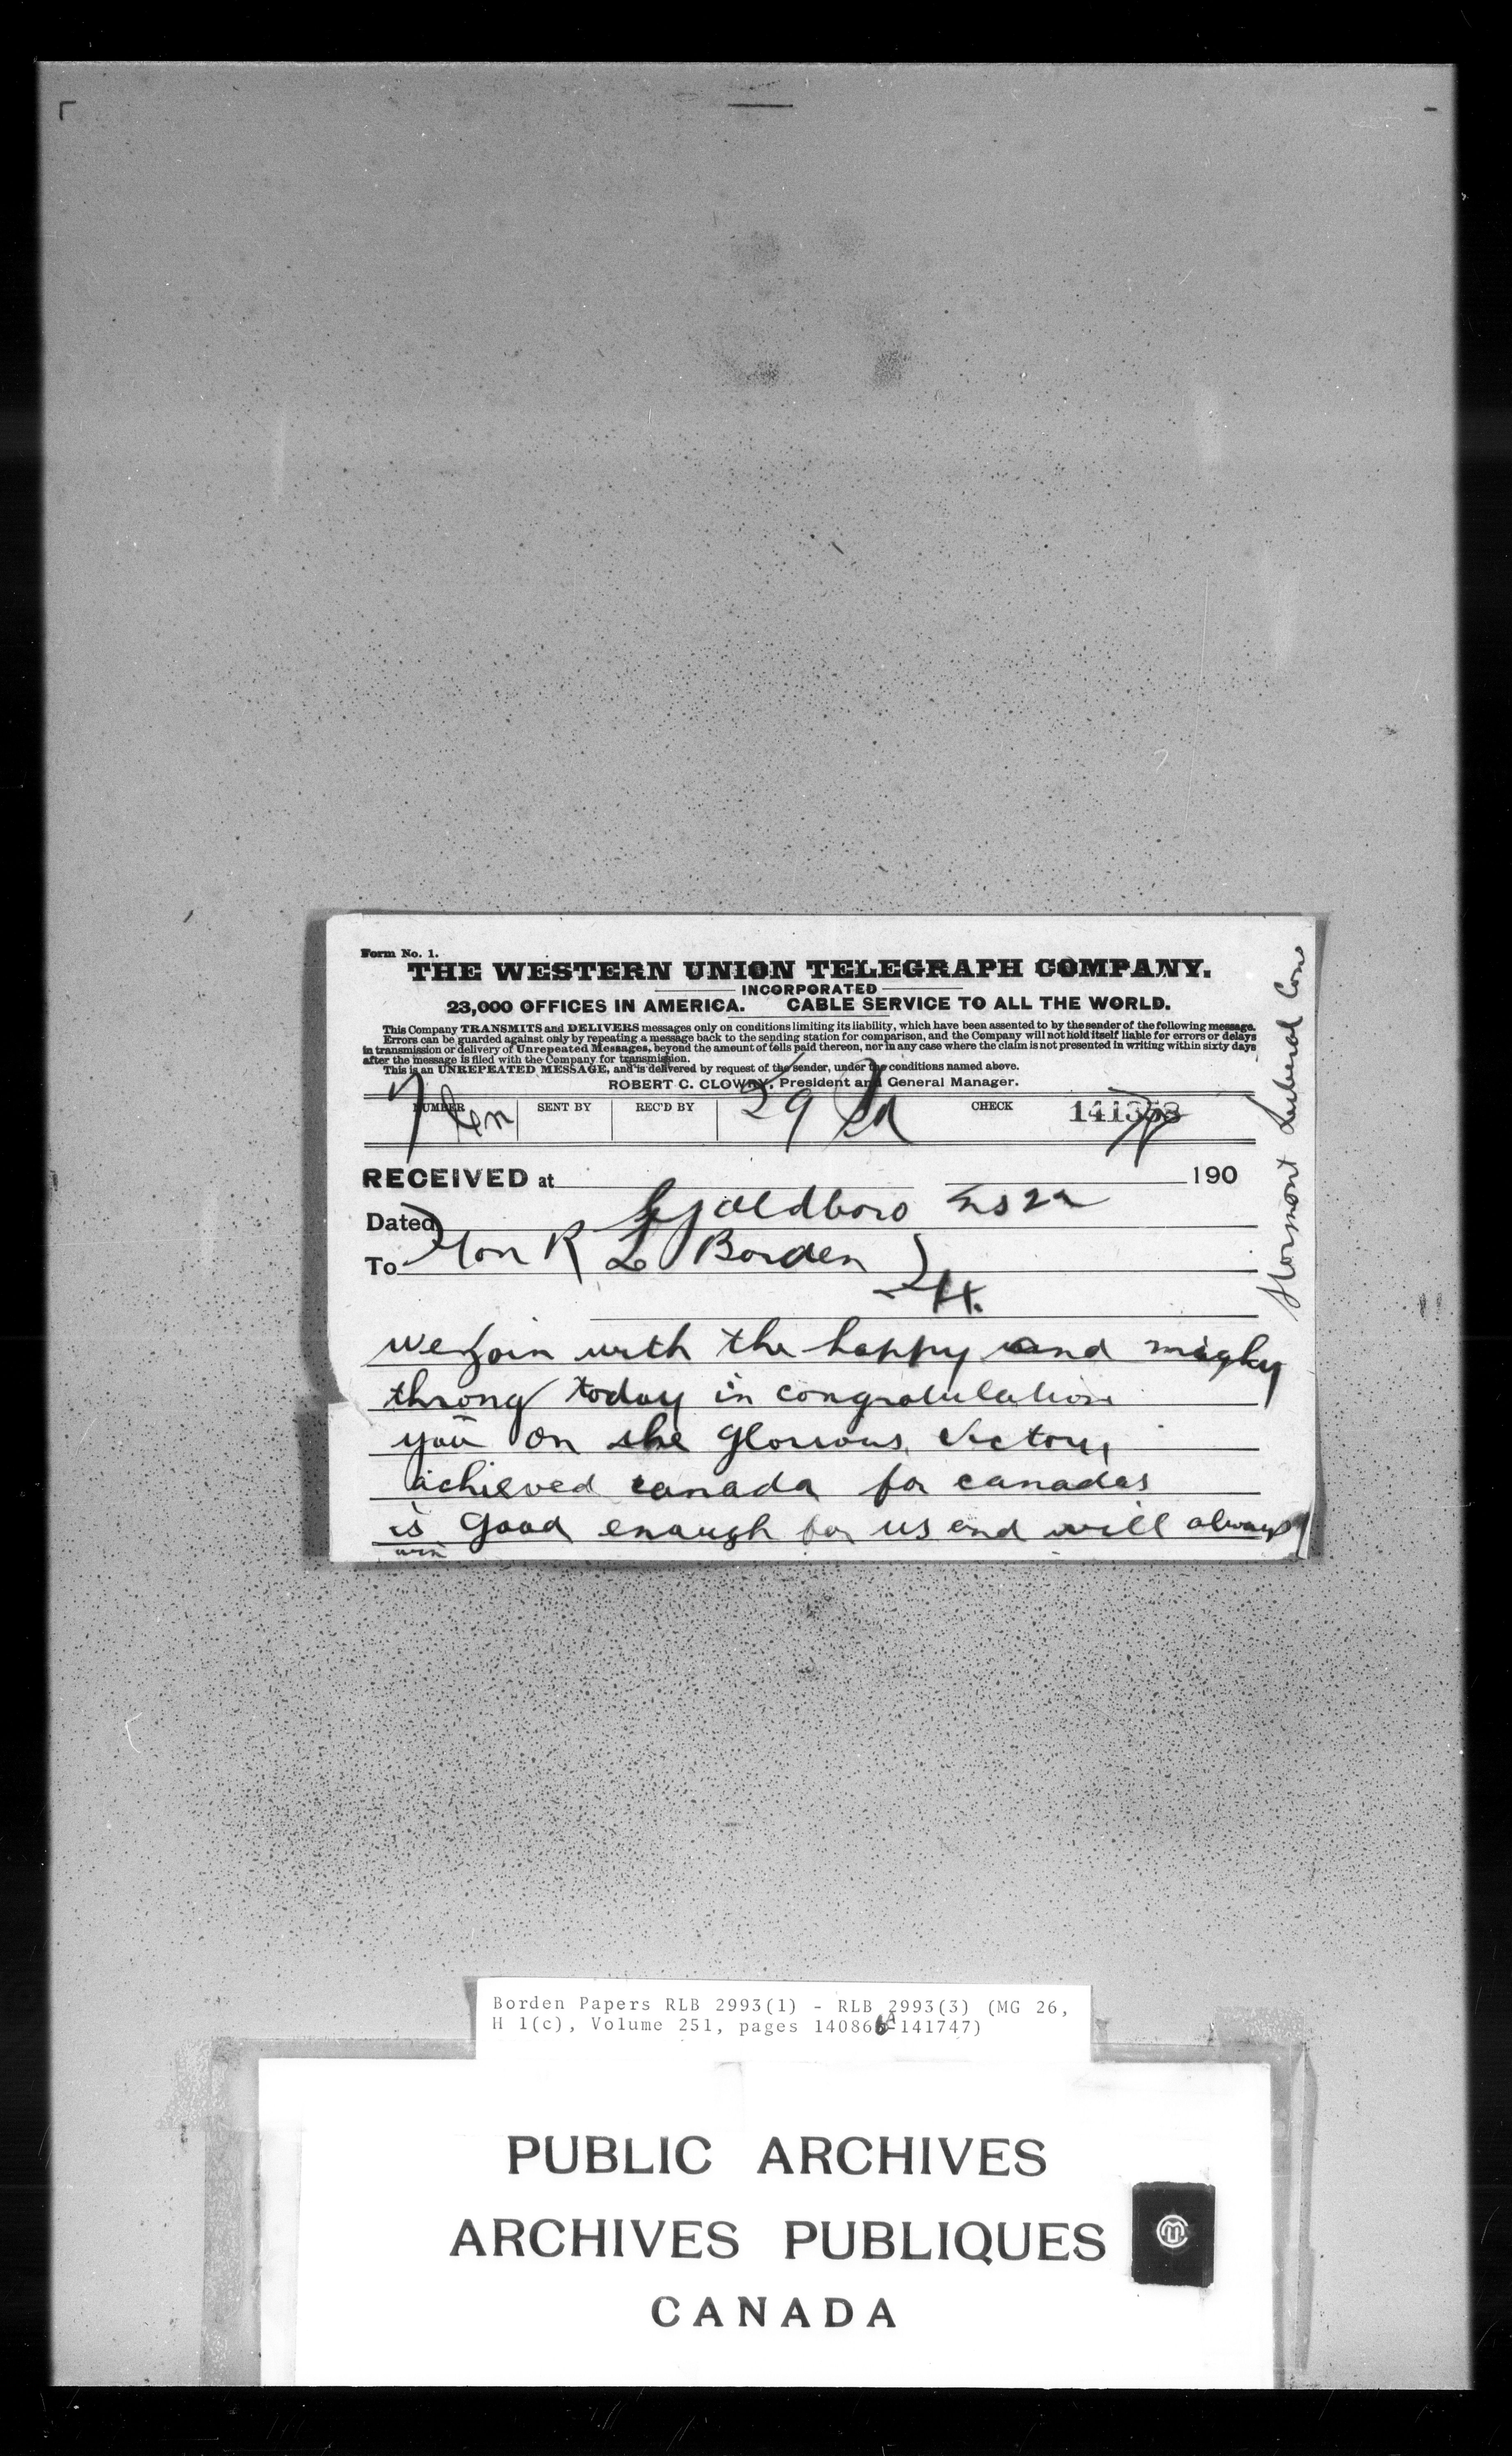 Form No. 1.
THE WESTERN UNION TELEGRAPH COMPANY.
INCORPORATED
23,000 OFFICES IN AMERICA. CABLE SERVICE TO ALL THE WORLD.
This Company TRANSMITS and DELIVERS messages only on conditions limiting its liability, which have been assented to by the sender of the following message.
Errors can be guarded against only by repeating a message back to the sending station for comparison, and the Company will not hold itself liable for errors or delays
in transmission or delivery of Unrepeated Messages, beyond the amount of tolls paid thereon, nor in any case where the claim is not presented in writing within sixty days
after the message is filed with the Company for transmission.
This is an UNREPEATED MESSAGE, and is delivered by request of the sender, under the conditions named above.
ROBERT C. CLOWRY, President and General Manager.
NUMBER SENT BY REC'D BY 29 Pd CHECK 141353
RECEIVED at 190
Dated Goldboro NS 22
To Hon R L Borden
Hx.
We join with the happy and mighty
throng today in congratulation
you on the glorious victory
achieved canada for canadas
is good enough for us and will always
win
Stormont Liberal Cons
Borden Papers RLB 2993(1) - RLB 2993(3) (MG 26,
H 1(c), Volume 251, pages 140866A-141747)
PUBLIC ARCHIVES
ARCHIVES PUBLIQUES
CANADA